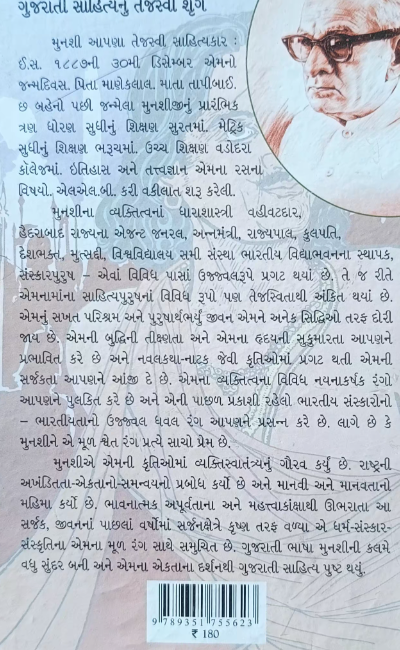 ગુજરાતી સાહિત્યનું તેજસ્વી શૃંગ
મુનશી આપણા તેજસ્વી સાહિત્યકાર :
ઈ.સ. ૧૮૮૭ની ૩૦મી ડિસેમ્બર એમનો
જન્મદિવસ. પિતા માણેકલાલ. માતા તાપીબાઈ.
છ બહેનો પછી જન્મેલા મુનશીજીનું પ્રારંભિક
ત્રણ ધોરણ સુધીનું શિક્ષણ સુરતમાં. મેટ્રિક
સુધીનું શિક્ષણ ભરૂચમાં. ઉચ્ચ શિક્ષણ વડોદરા
કૉલેજમાં. ઇતિહાસ અને તત્ત્વજ્ઞાન એમના રસના
વિષયો. એલએલ.બી. કરી વકીલાત શરૂ કરેલી.
મુનશીના વ્યક્તિત્વનાં ધારાશાસ્ત્રી વહીવટદાર,
હૈદરાબાદ રાજ્યના એજન્ટ જનરલ, અન્નમંત્રી, રાજ્યપાલ, કુલપતિ,
દેશભક્ત, મુત્સદ્દી, વિશ્વવિદ્યાલય સમી સંસ્થા ભારતીય વિદ્યાભવનના સ્થાપક,
સંસ્કારપુરુષ – એવાં વિવિધ પાસાં ઉજ્જ્વલરૂપે પ્રગટ થયાં છે. તે જ રીતે
એમનામાંના સાહિત્યપુરુષનાં વિવિધ રૂપો પણ તેજસ્વિતાથી અંકિત થયાં છે.
એમનું સખત પરિશ્રમ અને પુરુષાર્થભર્યું જીવન એમને અનેક સિદ્ધિઓ તરફ દોરી
જાય છે. એમની બુદ્ધિની તીક્ષ્ણતા અને એમના હૃદયની સુકુમારતા આપણને
પ્રભાવિત કરે છે અને નવલકથા-નાટક જેવી કૃતિઓમાં પ્રગટ થતી એમની
સર્જકતા આપણને આંજી દે છે. એમના વ્યક્તિત્વના વિવિધ નયનાકર્ષક રંગો
આપણને પુલકિત કરે છે અને એની પાછળ પ્રકાશી રહેલો ભારતીય સંસ્કારોનો
– ભારતીયતાનો ઉજ્જ્વલ ધવલ રંગ આપણને પ્રસન્ન કરે છે. લાગે છે કે
મુનશીને એ મૂળ શ્વેત રંગ પ્રત્યે સાચો પ્રેમ છે.
મુનશીએ એમની કૃતિઓમાં વ્યક્તિસ્વાતંત્ર્યનું ગૌરવ કર્યું છે. રાષ્ટ્રની
અખંડિતતા-એકતાનો-સમન્વયનો પ્રબોધ કર્યો છે અને માનવી અને માનવતાનો
મહિમા કર્યો છે. ભાવનાત્મક અપૂર્વતાના અને મહત્ત્વાકાંક્ષાથી ઊભરાતા આ
સર્જક, જીવનનાં પાછલાં વર્ષોમાં સર્જનક્ષેત્રે કૃષ્ણ તરફ વળ્યા એ ધર્મ-સંસ્કાર-
સંસ્કૃતિના એમના મૂળ રંગ સાથે સમુચિત છે. ગુજરાતી ભાષા મુનશીની કલમે
વધુ સુંદર બની અને એમના એકતાના દર્શનથી ગુજરાતી સાહિત્ય પુષ્ટ થયું.
9 789351 755623
₹ 180